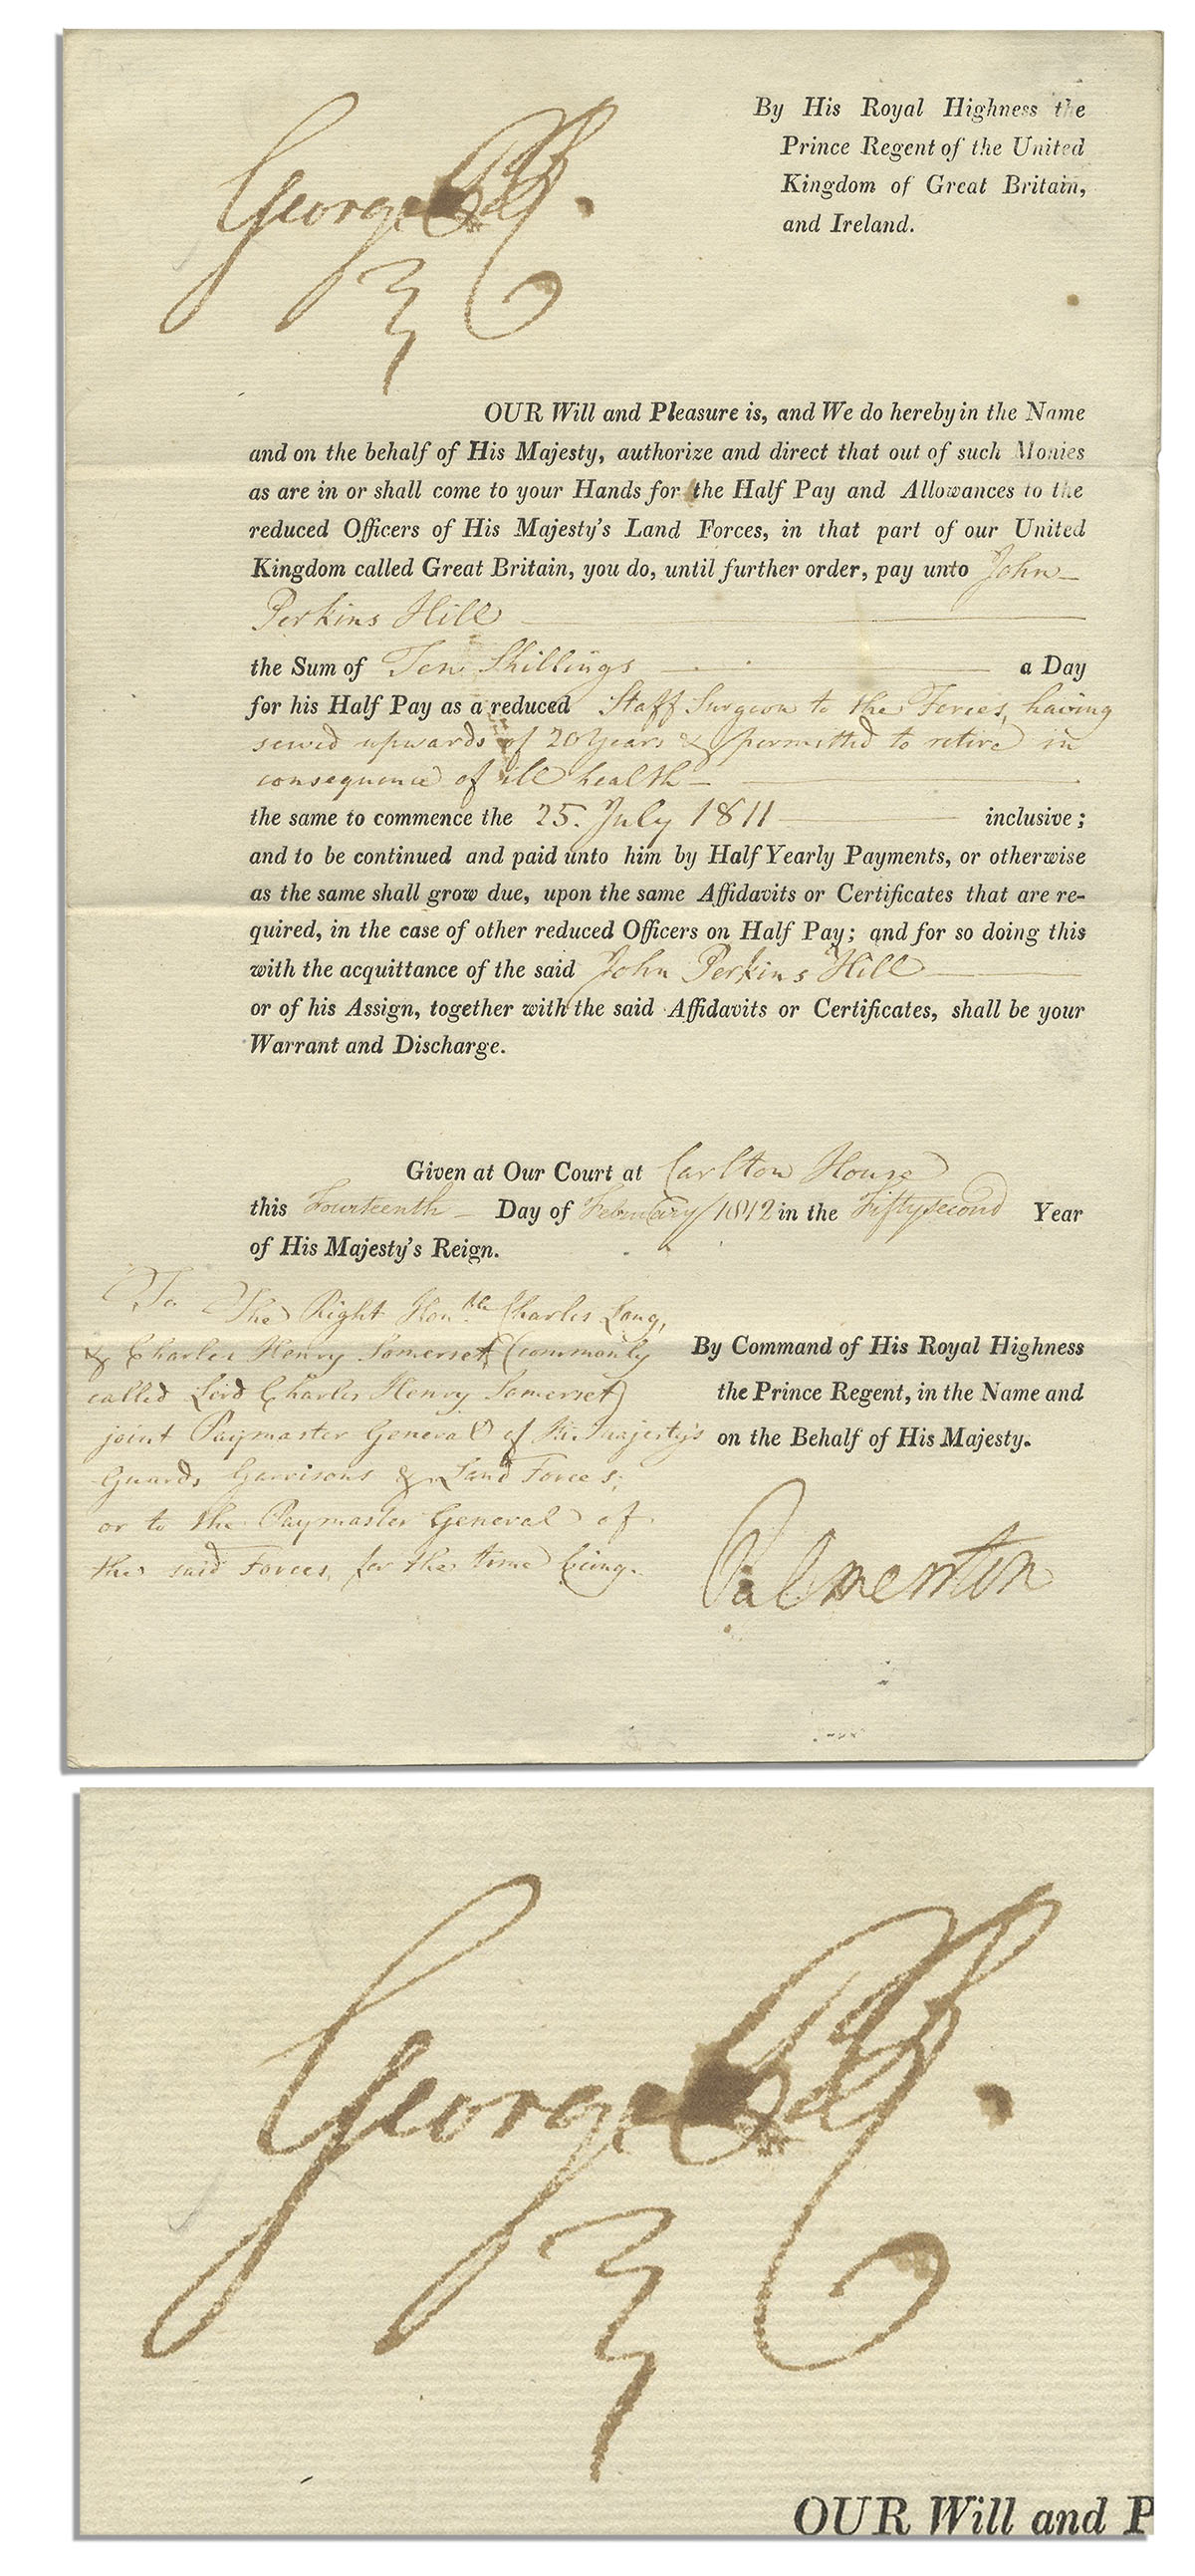 By His Royal Highness the
Prince Regent of the United
Kingdom of Great Britain,
and Ireland.
George P R.
OUR Will and Pleasure is, and We do hereby in the Name
and on the behalf of His Majesty, authorize and direct that out of such Monies
as are in or shall come to your Hands for the Half Pay and Allowances to the
reduced Officers of His Majesty's Land Forces, in that part of our United
Kingdom called Great Britain, you do, until further order, pay unto John
Perkins Hill
the Sum of Ten Shillings a Day
for his Half Pay as a reduced Staff Surgeon to the Forces, having
served upwards of 20 Years & permitted to retire in
consequence of ill health
the same to commence the 25. July 1811 inclusive;
and to be continued and paid unto him by Half Yearly Payments, or otherwise
as the same shall grow due, upon the same Affidavits or Certificates that are re-
quired, in the case of other reduced Officers on Half Pay; and for so doing this
with the acquittance of the said John Perkins Hill
or of his Assign, together with the said Affidavits or Certificates, shall be your
Warrant and Discharge.
Given at Our Court at Carlton House
this Fourteenth Day of February 1812 in the Fifty second Year
of His Majesty's Reign.
To The Right Hon.ble Charles Long,
& Charles Henry Somerset, (commonly
called Lord Charles Henry Somerset)
joint Paymaster General of His Majesty's
Guards Garrisons & Land Forces;
or to the Paymaster General of
the said Forces, for the time being.
By Command of His Royal Highness
the Prince Regent, in the Name and
on the Behalf of His Majesty.
Palmerston
George P R.
OUR Will and P